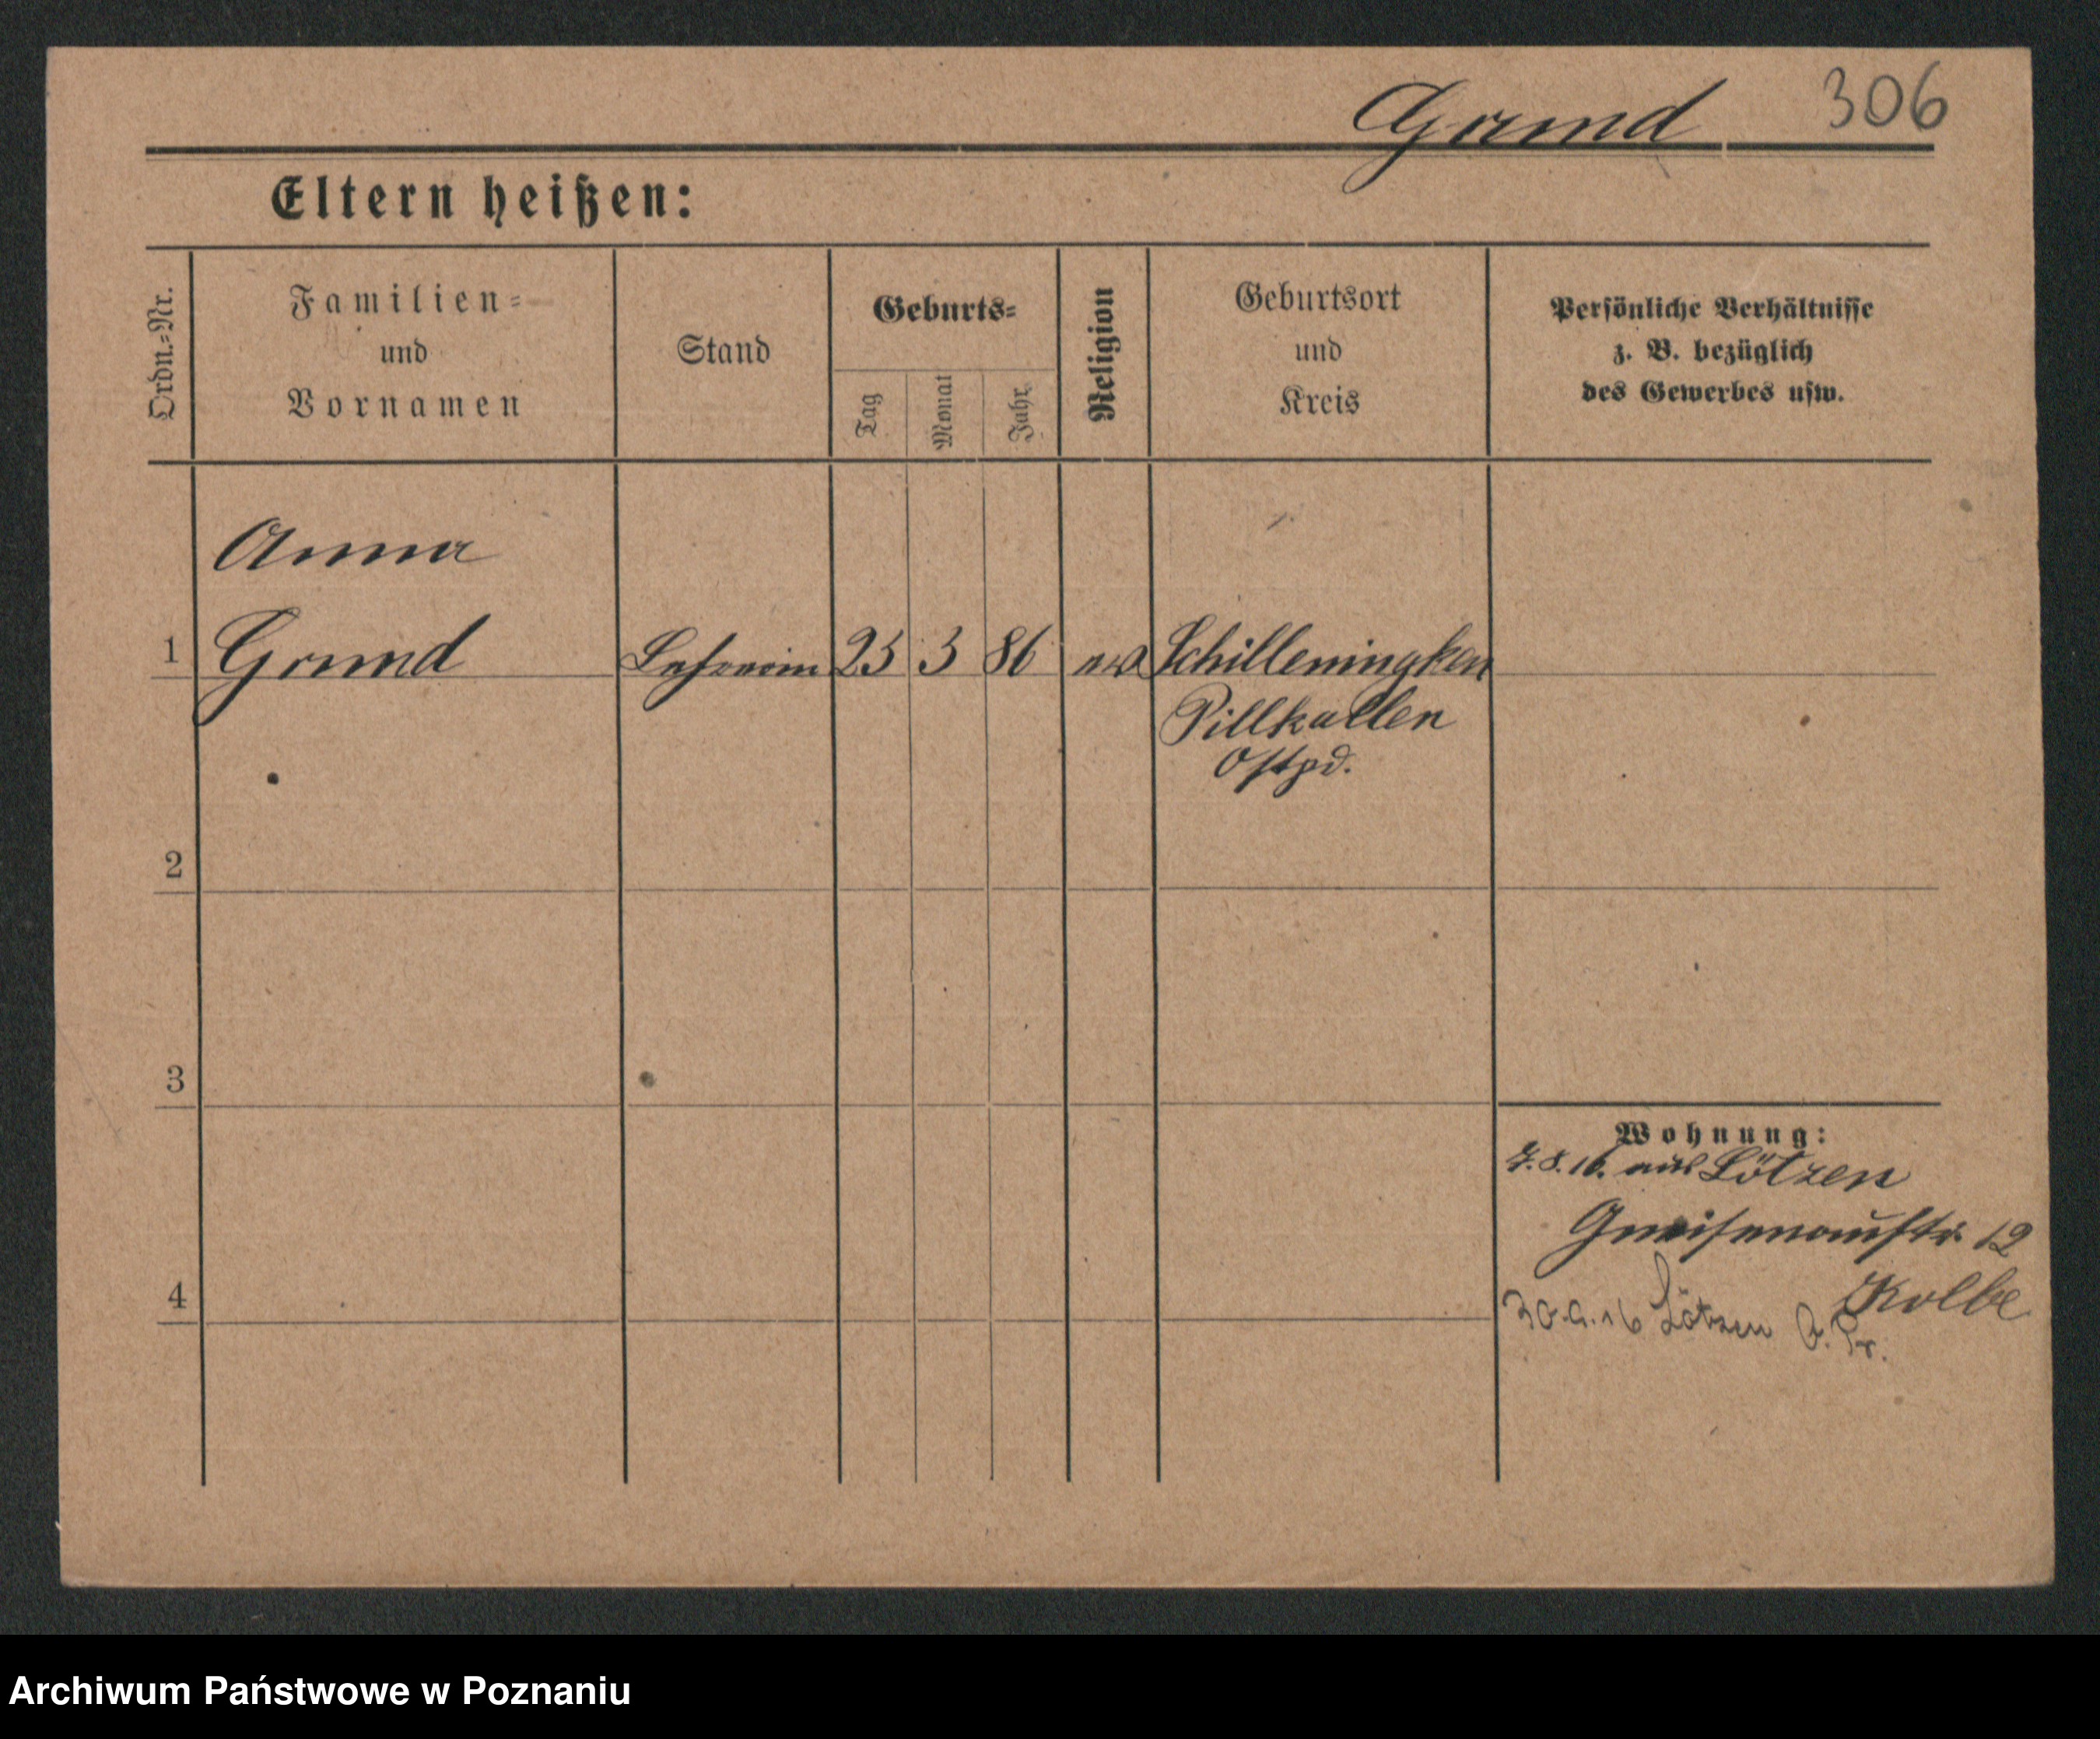 Grund 306
Eltern heißen:
Ordn.-Nr.
Familien-
und
Vornamen
Stand
Geburts-
Tag
Monat
Jahr
Religion
Geburtsort
und
Kreis
Persönliche Verhältnisse
z. B. bezüglich
des Gewerbes usw.
Anna
1 Grund Lehrerin 25 3 86 Schilleningken
Pillkallen
2
3
4
Wohnung:
7.8.16. aus Lötzen
Gneisenaustr. 12
Kolbe
30.9.16 Lötzen O. Pr.
Archiwum Państwowe w Poznaniu